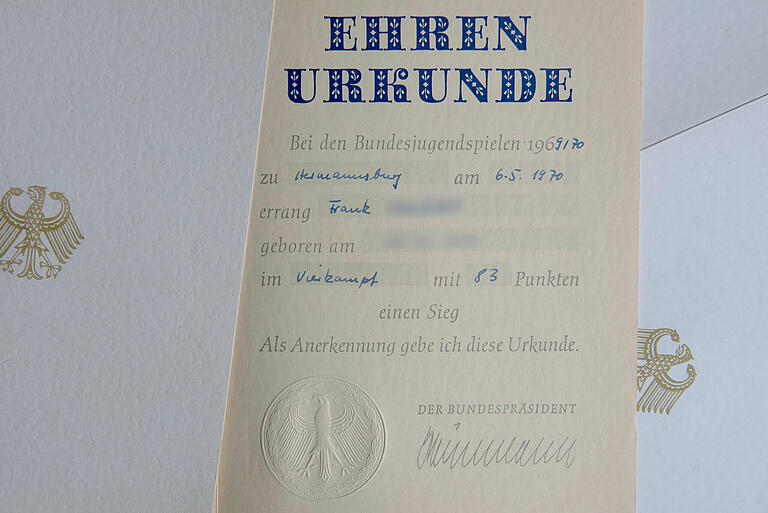 EHREN
URKUNDE
Bei den Bundesjugendspielen 1969/70
zu Hermannsburg am 6.5.1970
errang Frank
geboren am
im Vierkampf mit 83 Punkten
einen Sieg
Als Anerkennung gebe ich diese Urkunde.
DER BUNDESPRÄSIDENT